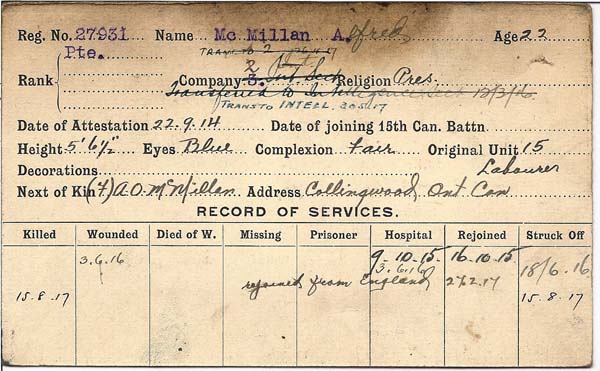 Reg. No. 27931 Name Mc Millan A.lfred Age 22
Pte. TRANS TO 2
Rank 2
Company 3. Int Sect Religion Pres.
Transferred to Intelligence Sect 12/3/16
TRANS TO INTELL. 30.5.17
Date of Attestation 22.9.14 Date of joining 15th Can. Battn.
Height 5' 6½" Eyes Blue Complexion Fair Original Unit 15
Decorations Labourer
Next of Kin (F) A.O. McMillan Address Collingwood, Ont Can
RECORD OF SERVICES.
Killed Wounded Died of W. Missing Prisoner Hospital Rejoined Struck Off
9-10-15. 16-10.15.
3.6.16 3.6.16 18/6.16
rejoined from England 27.2.17
15.8.17 15.8.17